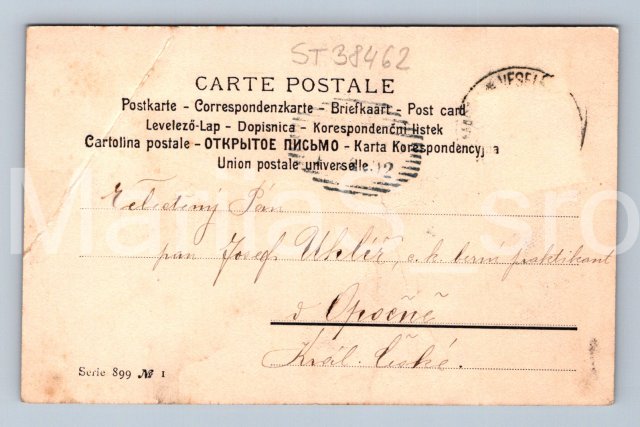 ST 38462
CARTE POSTALE
Postkarte - Correspondenzkarte - Briefkaart - Post card
Levelező-Lap - Dopisnica - Korespondenčni listek
Cartolina postale - ОТКРЫТОЕ ПИСЬМО - Karta Korespondencyjna
Union postale universelle.
Velectěný Pán
pan Josef Uhlíř, c. k. berní praktikant
v Opočně
Král. České.
Serie 899 № 1